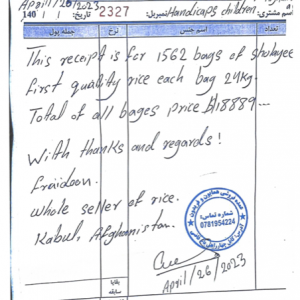 April/26/2023
Handicaps children
نمبربل: 2327 تاریخ: 140
اسم مشتری:
تعداد اسم جنس نرخ جمله پول
This receipt is for 1562 bags of sholayee
first quality rice each bag 24kg.
Total of all bages price $18889...
With thanks and regards!
fraidoon.
whole seller of rice.
Kabul, Afghanistan.
شماره تماس:
0781954224
April/26/2023
بقایا
سابقه